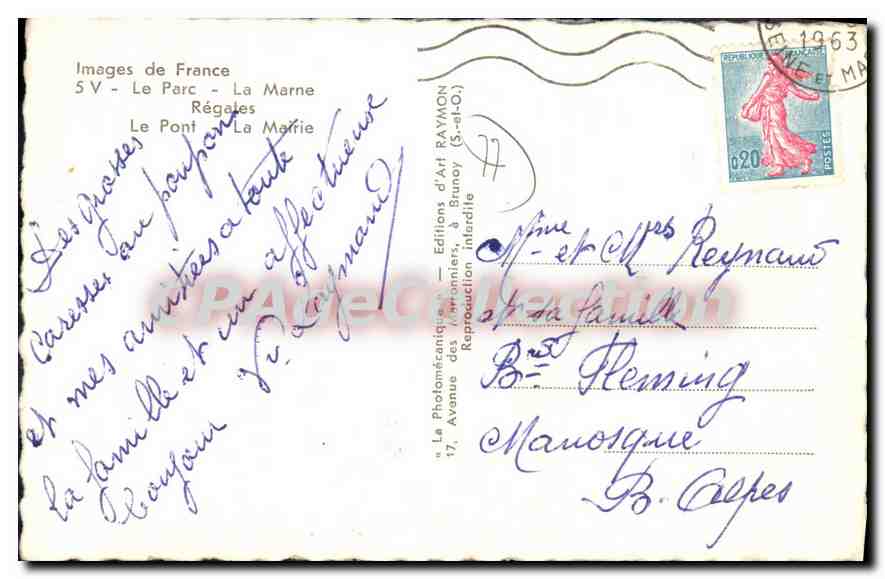 Images de France
5 V - Le Parc - La Marne
Régates
Le Pont - La Mairie
Des grosses
Caresses au poupon
et mes amitiés a toute
la famille et un affectueuse
bonjour
" La Photomécanique " — Editions d'Art RAYMON
17, Avenue des Marronniers, à Brunoy (S.-et-O.)
Reproduction interdite
77
1963
SEINE ET MA
REPUBLIQUE FRANÇAISE
0,20
POSTES
Mme et Mrs Reynaud
et sa famille
Bne Fleming
Manosque
B. Alpes
CPAgeCollection